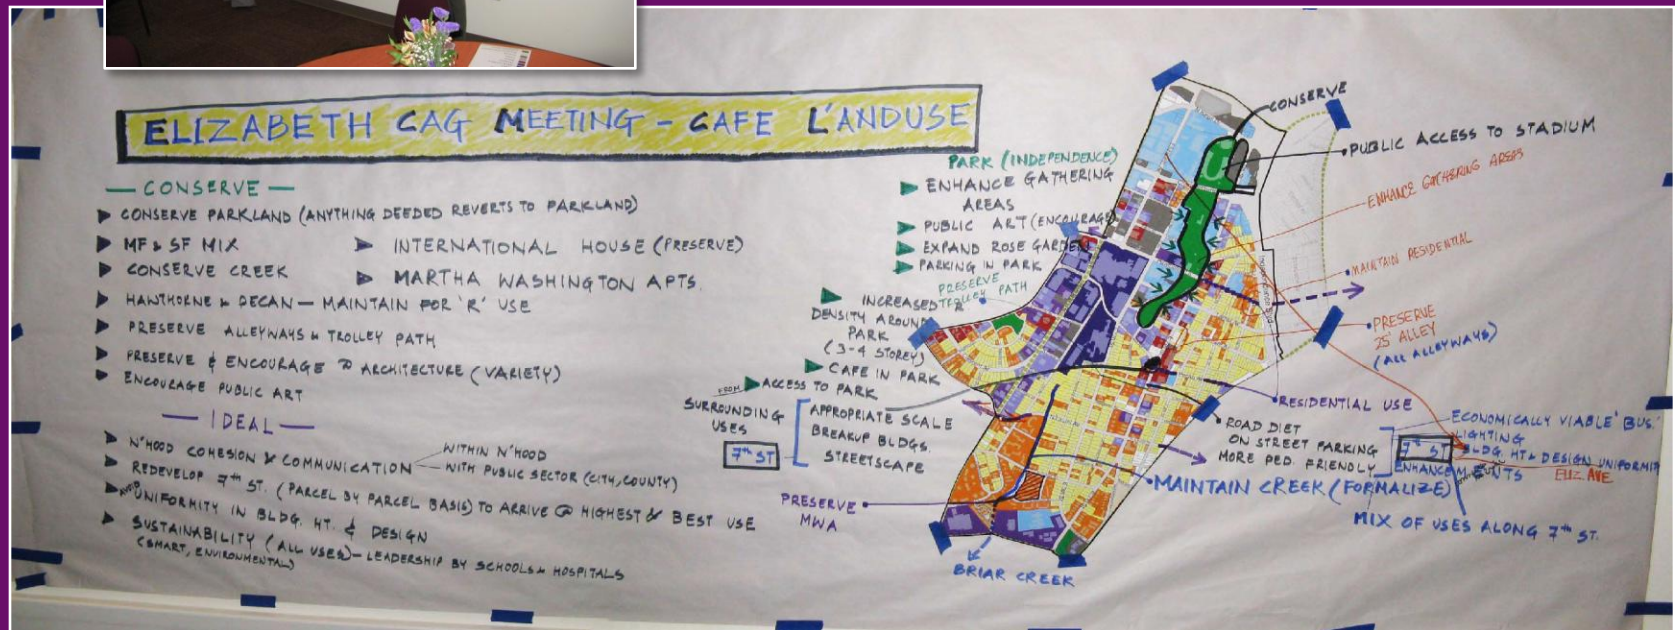 ELIZABETH CAG MEETING - CAFE L'ANDUSE
— CONSERVE —
CONSERVE PARKLAND (ANYTHING DEEDED REVERTS TO PARKLAND)
MF & SF MIX
INTERNATIONAL HOUSE (PRESERVE)
CONSERVE CREEK
MARTHA WASHINGTON APTS.
HAWTHORNE & PECAN — MAINTAIN FOR 'R' USE
PRESERVE ALLEYWAYS & TROLLEY PATH
PRESERVE & ENCOURAGE ARCHITECTURE (VARIETY)
ENCOURAGE PUBLIC ART
— IDEAL —
N'HOOD COHESION & COMMUNICATION
WITHIN N'HOOD
WITH PUBLIC SECTOR (CITY, COUNTY)
REDEVELOP 7th ST. (PARCEL BY PARCEL BASIS) TO ARRIVE @ HIGHEST & BEST USE
AVOID UNIFORMITY IN BLDG. HT. & DESIGN
SUSTAINABILITY (ALL USES) — LEADERSHIP BY SCHOOLS & HOSPITALS
(SMART, ENVIRONMENTAL)
PARK (INDEPENDENCE)
ENHANCE GATHERING
AREAS
PUBLIC ART (ENCOURAGE)
EXPAND ROSE GARDEN
PARKING IN PARK
PRESERVE
TROLLEY PATH
INCREASED
DENSITY AROUND
PARK
(3-4 STOREY)
CAFE IN PARK
ACCESS TO PARK
FROM
SURROUNDING
USES
7th ST
APPROPRIATE SCALE
BREAKUP BLDGS.
STREETSCAPE
PRESERVE
MWA
BRIAR CREEK
CONSERVE
PUBLIC ACCESS TO STADIUM
ENHANCE GATHERING AREAS
MAINTAIN RESIDENTIAL
PRESERVE
25' ALLEY
(ALL ALLEYWAYS)
RESIDENTIAL USE
ROAD DIET
ON STREET PARKING
MORE PED. FRIENDLY
7th ST
ECONOMICALLY VIABLE 'BUS.'
LIGHTING
BLDG. HT & DESIGN UNIFORMITY
ENHANCEMENTS
ELIZ AVE
MAINTAIN CREEK (FORMALIZE)
MIX OF USES ALONG 7th ST.